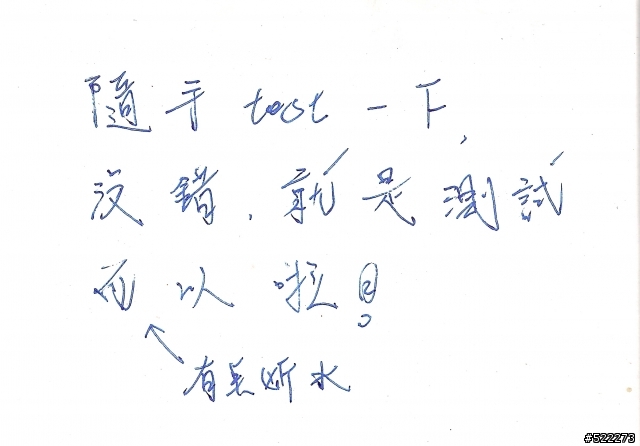 隨手 test 一下,
沒錯,就是測試
而以啦!
有點斷水
#522273